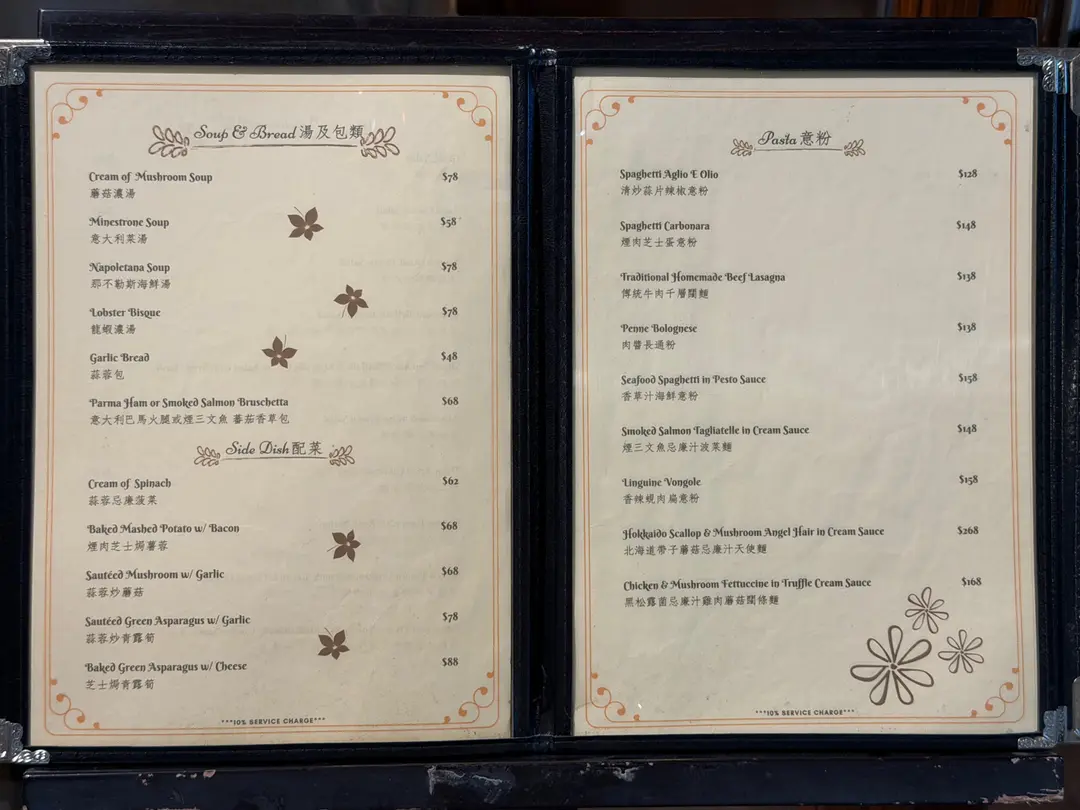 Soup & Bread 湯及包類
Cream of Mushroom Soup $78
蘑菇濃湯
Minestrone Soup $58
意大利菜湯
Napoletana Soup $78
那不勒斯海鮮湯
Lobster Bisque $78
龍蝦濃湯
Garlic Bread $48
蒜蓉包
Parma Ham or Smoked Salmon Bruschetta $68
意大利巴馬火腿或煙三文魚 蕃茄香草包
Side Dish 配菜
Cream of Spinach $62
蒜蓉忌廉菠菜
Baked Mashed Potato w/ Bacon $68
煙肉芝士焗薯蓉
Sautéed Mushroom w/ Garlic $68
蒜蓉炒蘑菇
Sautéed Green Asparagus w/ Garlic $78
蒜蓉炒青露筍
Baked Green Asparagus w/ Cheese $88
芝士焗青露筍
***10% SERVICE CHARGE***
Pasta 意粉
Spaghetti Aglio E Olio $128
清炒蒜片辣椒意粉
Spaghetti Carbonara $148
煙肉芝士蛋意粉
Traditional Homemade Beef Lasagna $138
傳統牛肉千層闊麵
Penne Bolognese $138
肉醬長通粉
Seafood Spaghetti in Pesto Sauce $158
香草汁海鮮意粉
Smoked Salmon Tagliatelle in Cream Sauce $148
煙三文魚忌廉汁波菜麵
Linguine Vongole $158
香辣蜆肉扁意粉
Hokkaido Scallop & Mushroom Angel Hair in Cream Sauce $268
北海道帶子蘑菇忌廉汁天使麵
Chicken & Mushroom Fettuccine in Truffle Cream Sauce $168
黑松露菌忌廉汁雞肉蘑菇闊條麵
***10% SERVICE CHARGE***